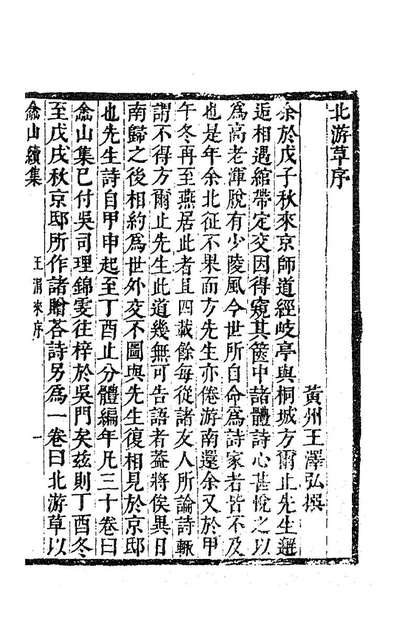 北游草序
黃州王澤弘撰
余於戊子秋來京師道經岐亭與桐城方爾止先生邂
逅相遇縮帶定交因得窺其篋中諸體詩心甚悅之以
爲高老渾脫有少陵風今世所自命爲詩家者皆不及
也是年余北征不果而方先生亦倦游南還余又於甲
午冬再至燕居此者且四載餘每從諸友人所論詩輒
謂不得方爾止先生此道幾無可告語者葢將俟異日
南歸之後相約爲世外交不圖與先生復相見於京邸
也先生詩自甲申起至丁酉止分體編年凡三十卷曰
嵞山集已付吳司理錦雯往梓於吳門矣兹則丁酉冬
至戊戌秋京邸所作諸贈荅詩另爲一卷曰北游草以
嵞山續集
王涓來序
一